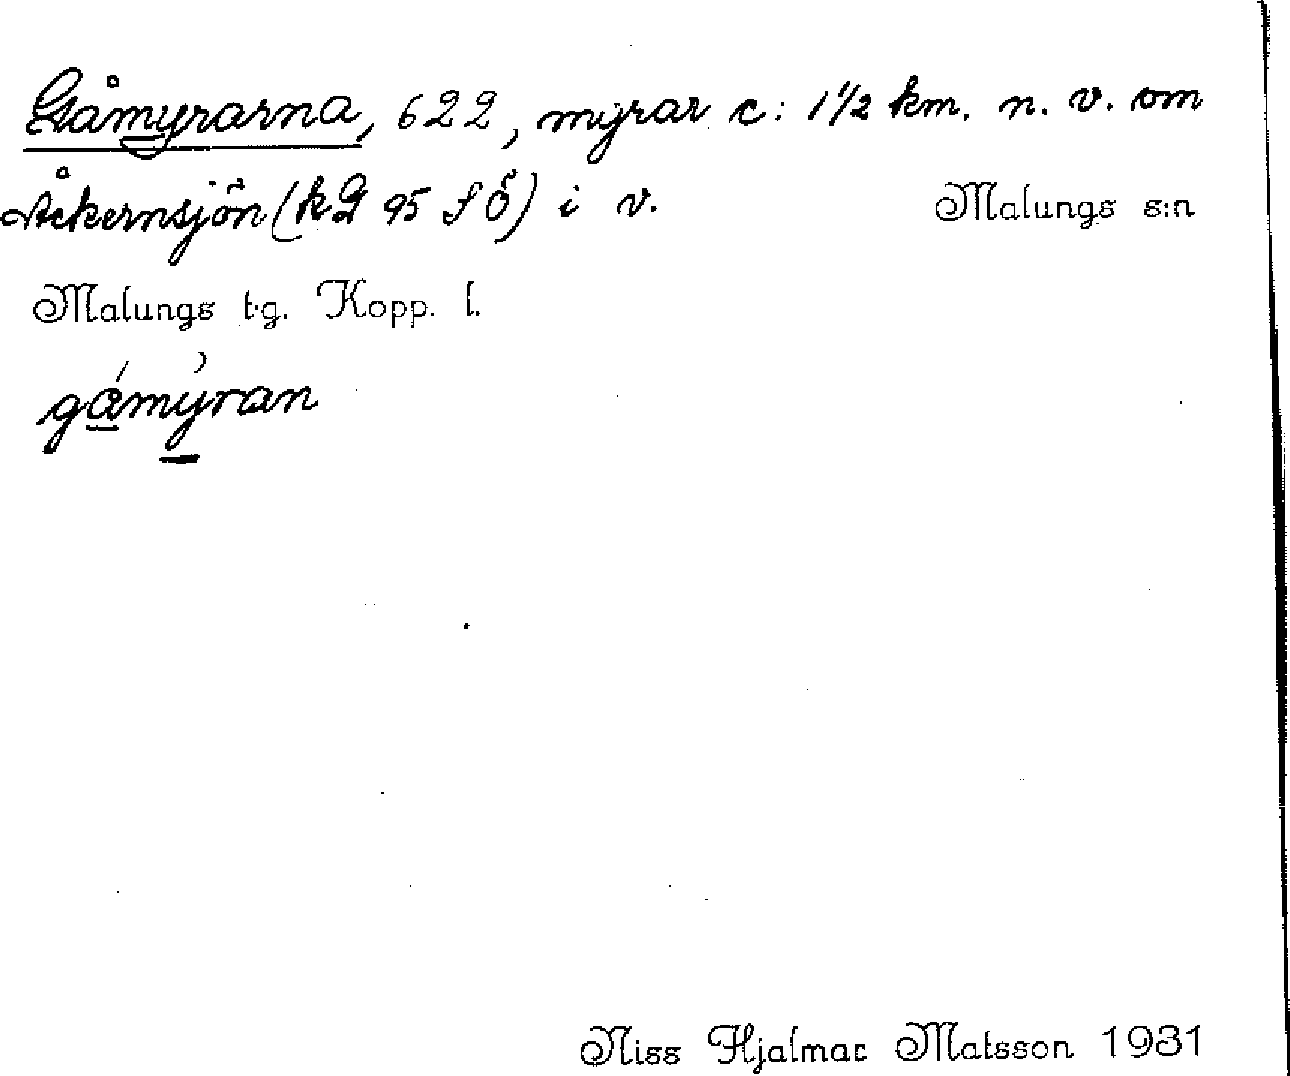 Gåmyrarna, 622, myrar c: 1 1/2 km. n. v. om
Åkernsjön (kG 95 SÖ) i v. Malungs s:n
Malungs t.g. Kopp. l.
gåmyran
Niss Hjalmar Matsson 1931